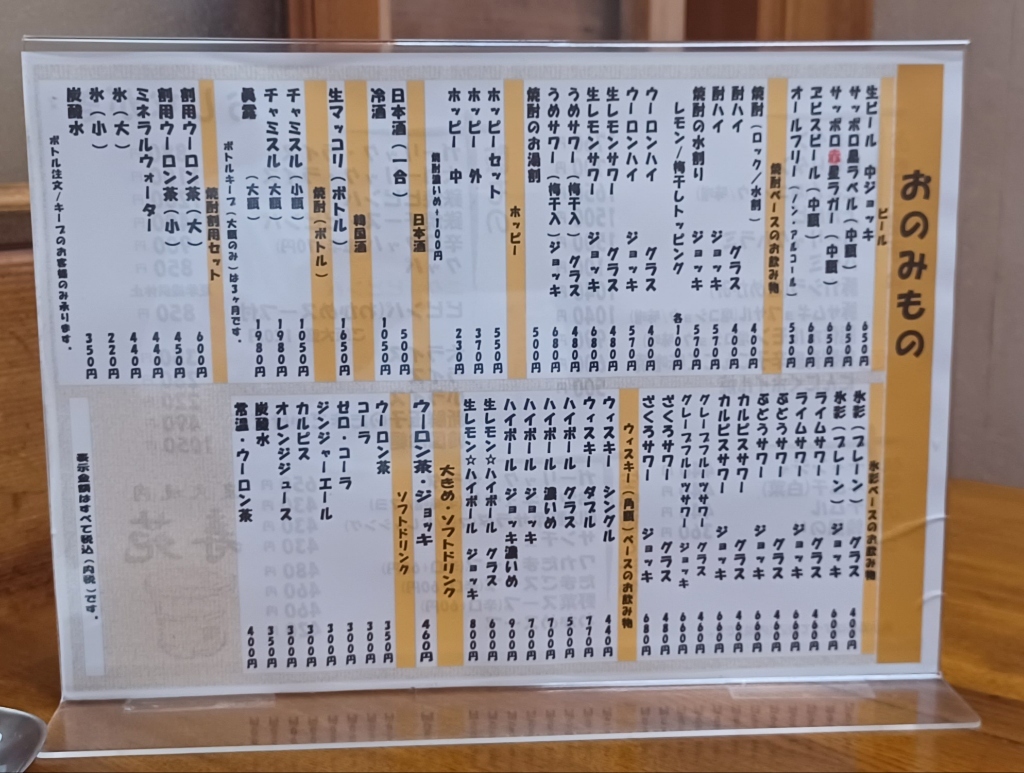 おのみもの
ビール
生ビール 中ジョッキ 650円
サッポロ黒ラベル(中瓶) 650円
サッポロ赤星ラガー(中瓶) 650円
ヱビスビール(中瓶) 680円
オールフリー(ノン・アルコール) 530円
焼酎ベースのお飲み物
焼酎(ロック/水割) 400円
酎ハイ グラス 400円
酎ハイ ジョッキ 570円
焼酎の水割り ジョッキ 570円
レモン/梅干しトッピング 各100円
ウーロンハイ グラス 400円
ウーロンハイ ジョッキ 570円
生レモンサワー グラス 480円
生レモンサワー ジョッキ 680円
うめサワー(梅干入)グラス 480円
うめサワー(梅干入)ジョッキ 680円
焼酎のお湯割 500円
ホッピー
ホッピーセット 550円
ホッピー 外 370円
ホッピー 中 230円
焼酎濃いめ+100円
日本酒
日本酒(一合) 500円
冷酒 1050円
韓国酒
生マッコリ(ボトル) 1650円
焼酎(ボトル)
チャミスル(小瓶) 1050円
チャミスル(大瓶) 1980円
眞露 (大瓶) 1980円
ボトルキープ(大瓶のみ)は3ヶ月です。
焼酎割用セット
割用ウーロン茶(大) 600円
割用ウーロン茶(小) 450円
ミネラルウォーター 440円
氷(大) 440円
氷(小) 220円
炭酸水 350円
ボトル注文/キープのお客様のみ承ります。
氷彩ベースのお飲み物
氷彩(プレーン) グラス 400円
氷彩(プレーン) ジョッキ 600円
ライムサワー グラス 460円
ライムサワー ジョッキ 660円
ぶどうサワー グラス 460円
ぶどうサワー ジョッキ 660円
カルピスサワー グラス 460円
カルピスサワー ジョッキ 660円
グレープフルーツサワー グラス 460円
グレープフルーツサワー ジョッキ 660円
ざくろサワー グラス 480円
ざくろサワー ジョッキ 680円
ウィスキー(角瓶)ベースのお飲み物
ウィスキー シングル 440円
ウィスキー ダブル 770円
ハイボール グラス 500円
ハイボール 濃いめ 700円
ハイボール ジョッキ 700円
ハイボール ジョッキ濃いめ 900円
生レモン☆ハイボール グラス 600円
生レモン☆ハイボール ジョッキ 800円
大きめ・ソフトドリンク
ウーロン茶・ジョッキ 460円
ソフトドリンク
ウーロン茶 350円
コーラ 300円
ゼロ・コーラ 300円
ジンジャーエール 300円
カルピス 300円
オレンジジュース 300円
炭酸水 350円
常温・ウーロン茶 400円
表示金額はすべて税込(内税)です。